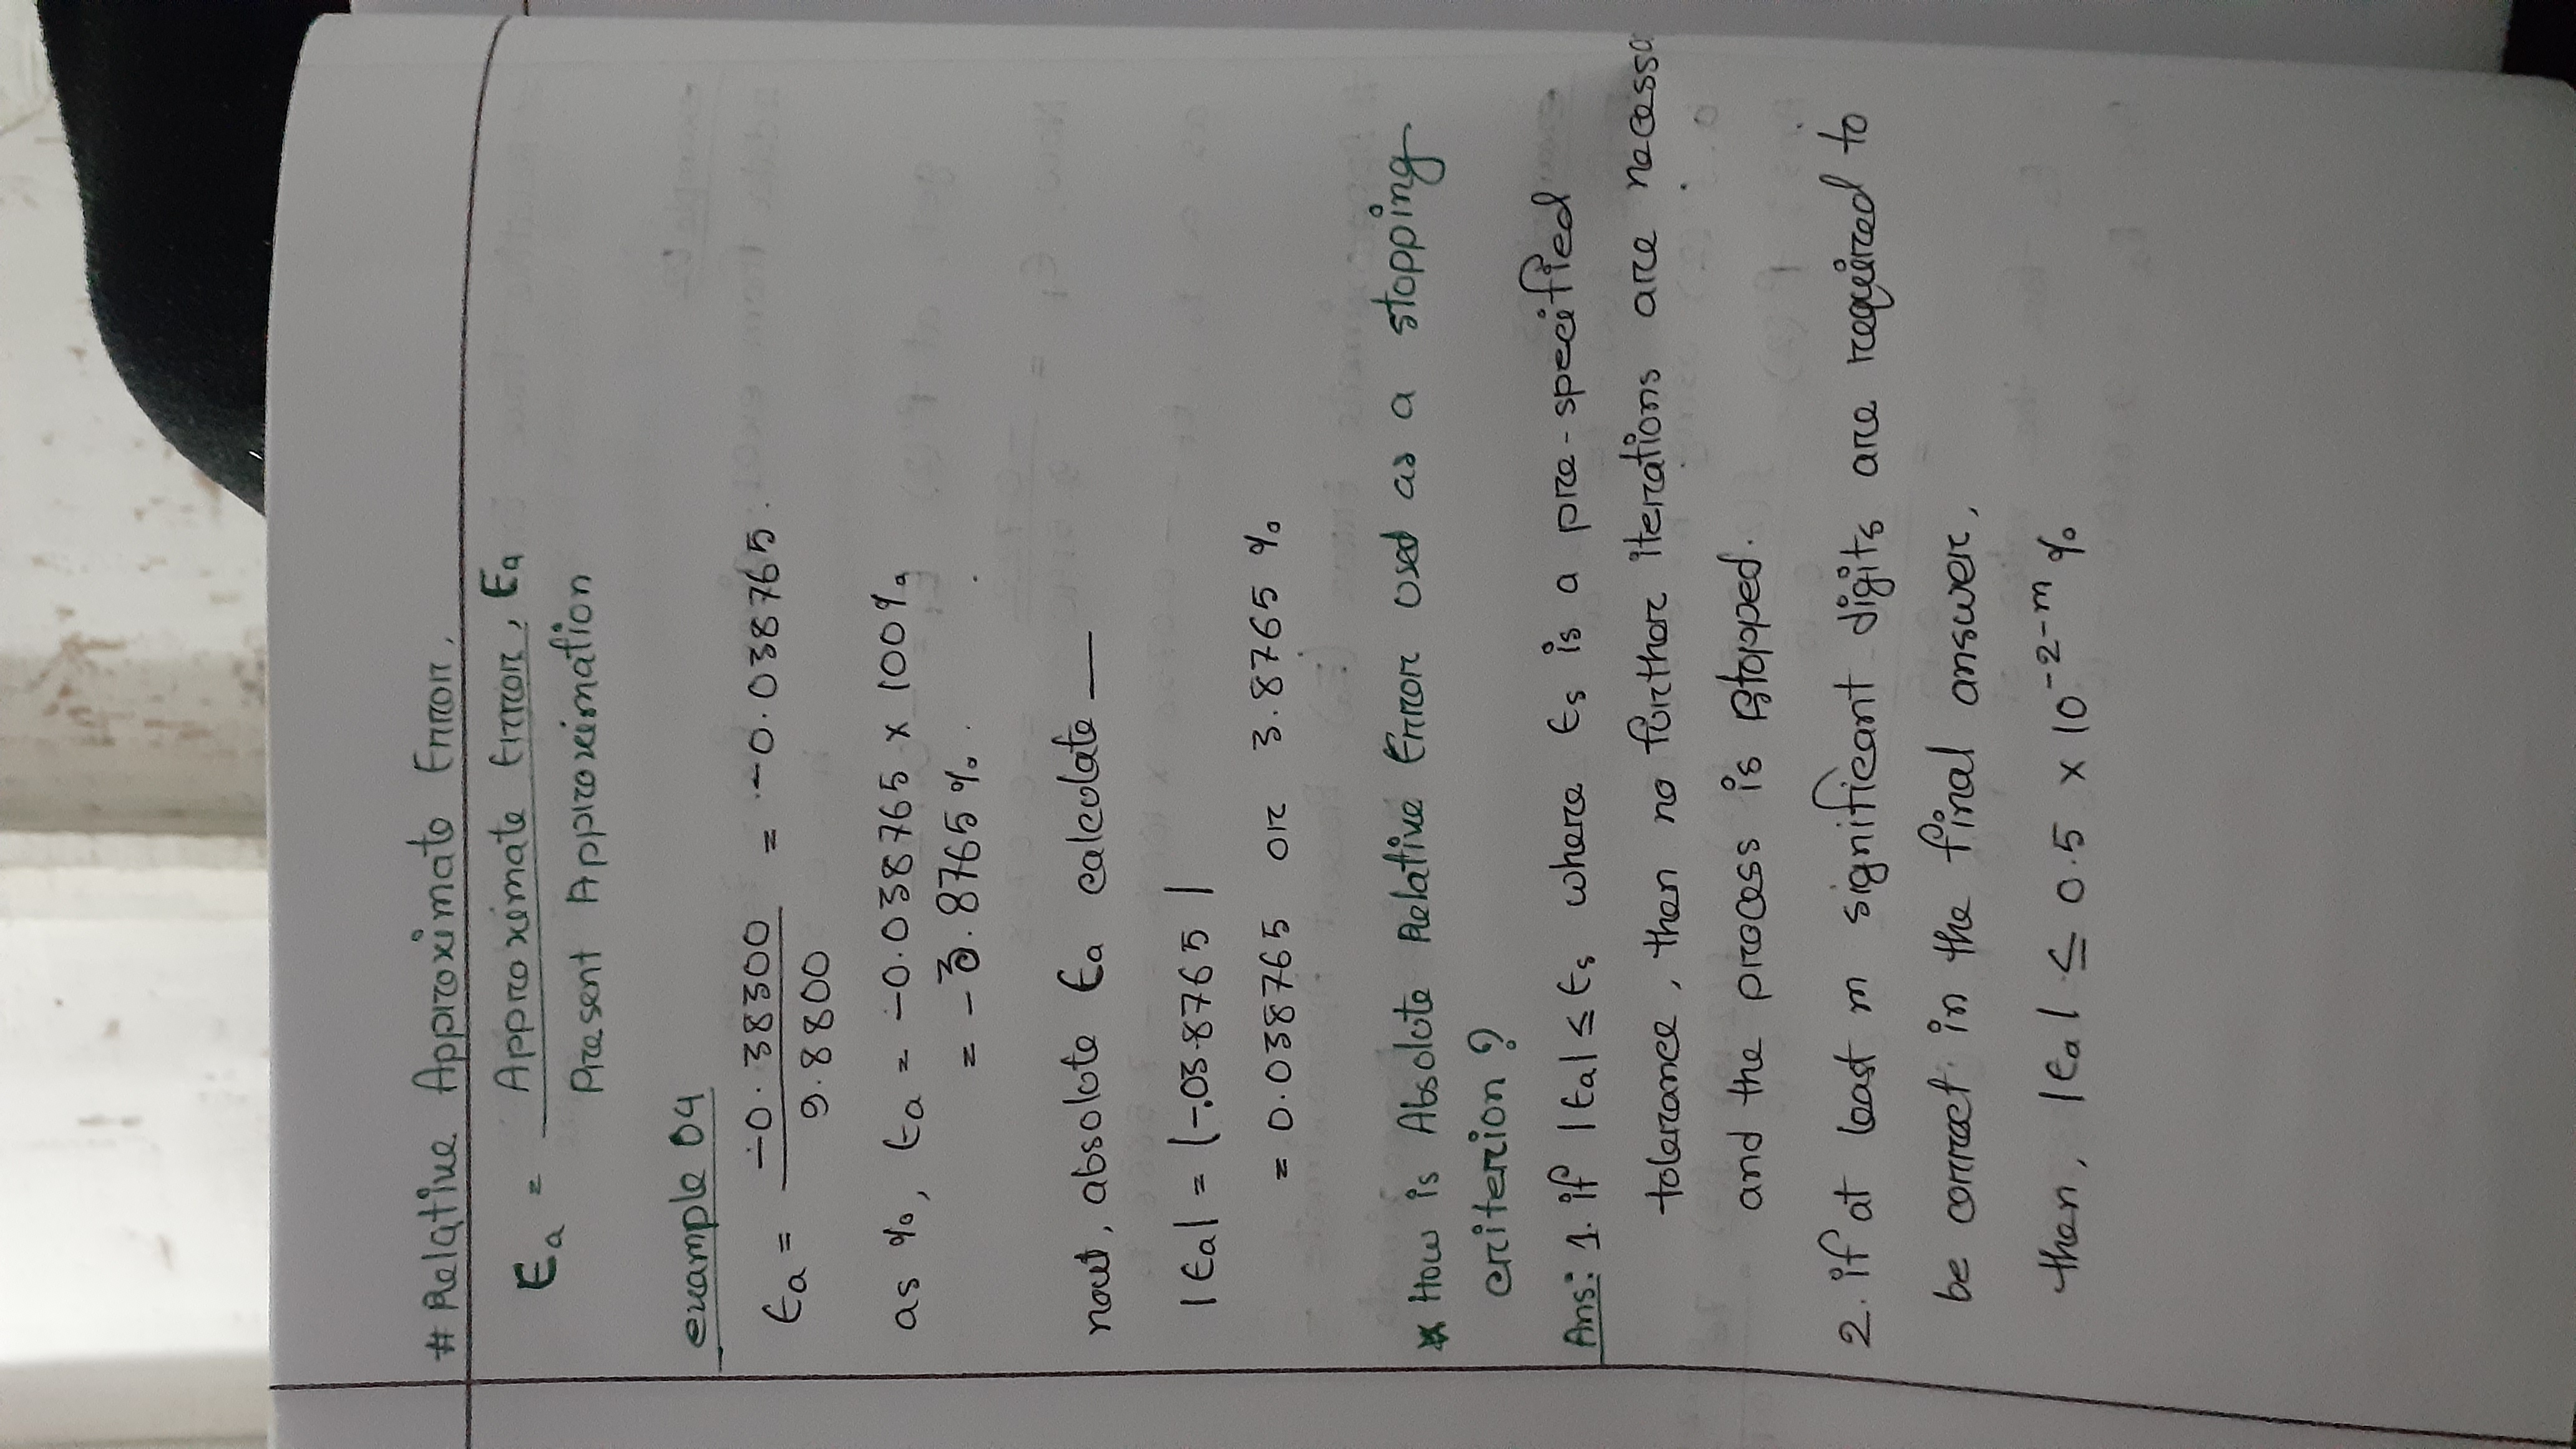 # Relative Approximate Error,
Ea = Approximate Error, Ea
Present Approximation
example 04
Ea = -0.38300 / 9.8800 = -0.038765.
as %, Ea = -0.038765 x 100%
= -3.8765 %.
now, absolute Ea calculate —
|Ea| = |-.038765|
= 0.038765 or 3.8765 %
* How is Absolute Relative Error used as a stopping
criterion?
Ans: 1. if |Ea| ≤ Es where Es is a pre-specified
tolerance, then no further iterations are necessa
and the process is stopped.
2. if at least m significant digits are required to
be correct in the final answer,
then, |Ea| ≤ 0.5 x 10^-2-m %